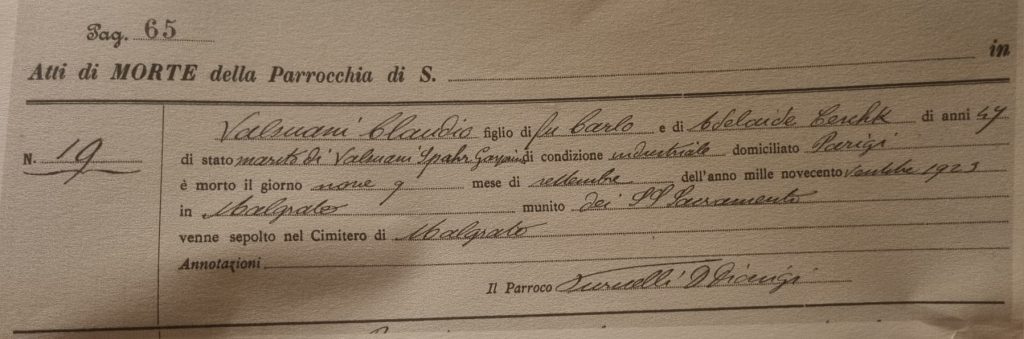 Pag. 65
in
Atti di MORTE della Parrocchia di S.
N. 19
Valsuani Claudio figlio di fu Carlo e di Adelaide di anni 47
di stato marito di Valsuani Spahr di condizione industriale domiciliato Parigi
è morto il giorno nove 9 mese di settembre dell'anno mille novecento 1923
in Malgrate munito dei SS Sacramento
venne sepolto nel Cimitero di Malgrate
Annotazioni
Il Parroco